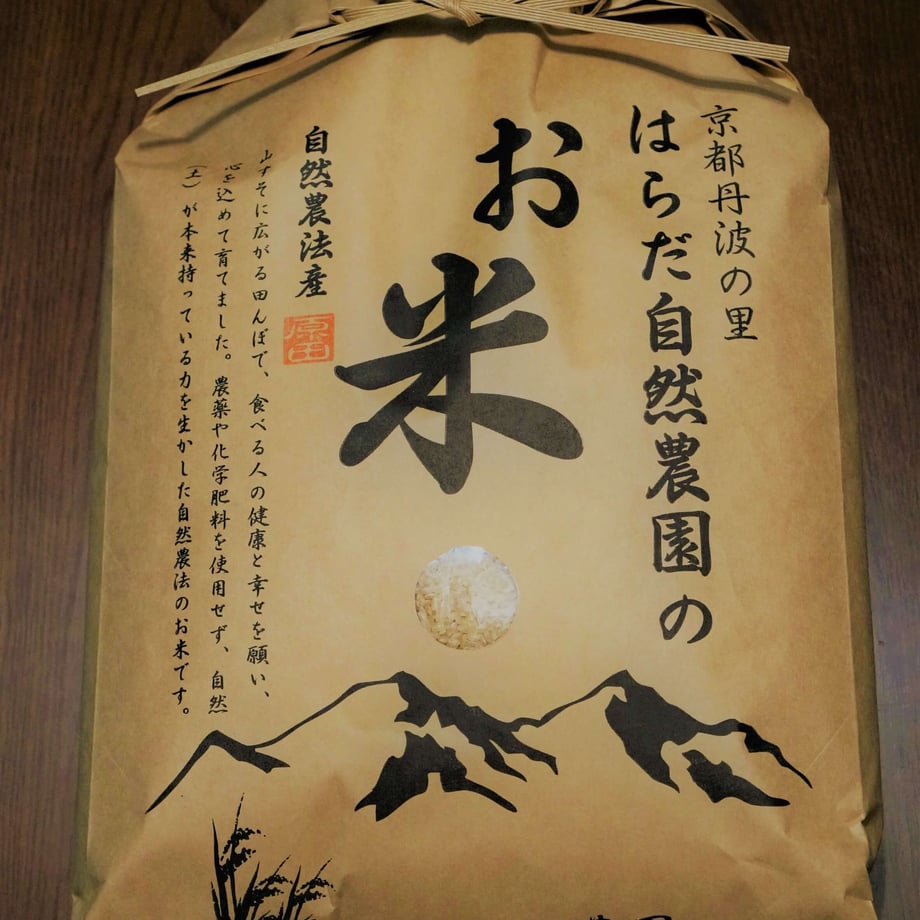 京都丹波の里
はらだ自然農園の
お米
自然農法産
原田
山すそに広がる田んぼで、食べる人の健康と幸せを願い、
心を込めて育てました。農薬や化学肥料を使用せず、自然
(土)が本来持っている力を生かした自然農法のお米です。